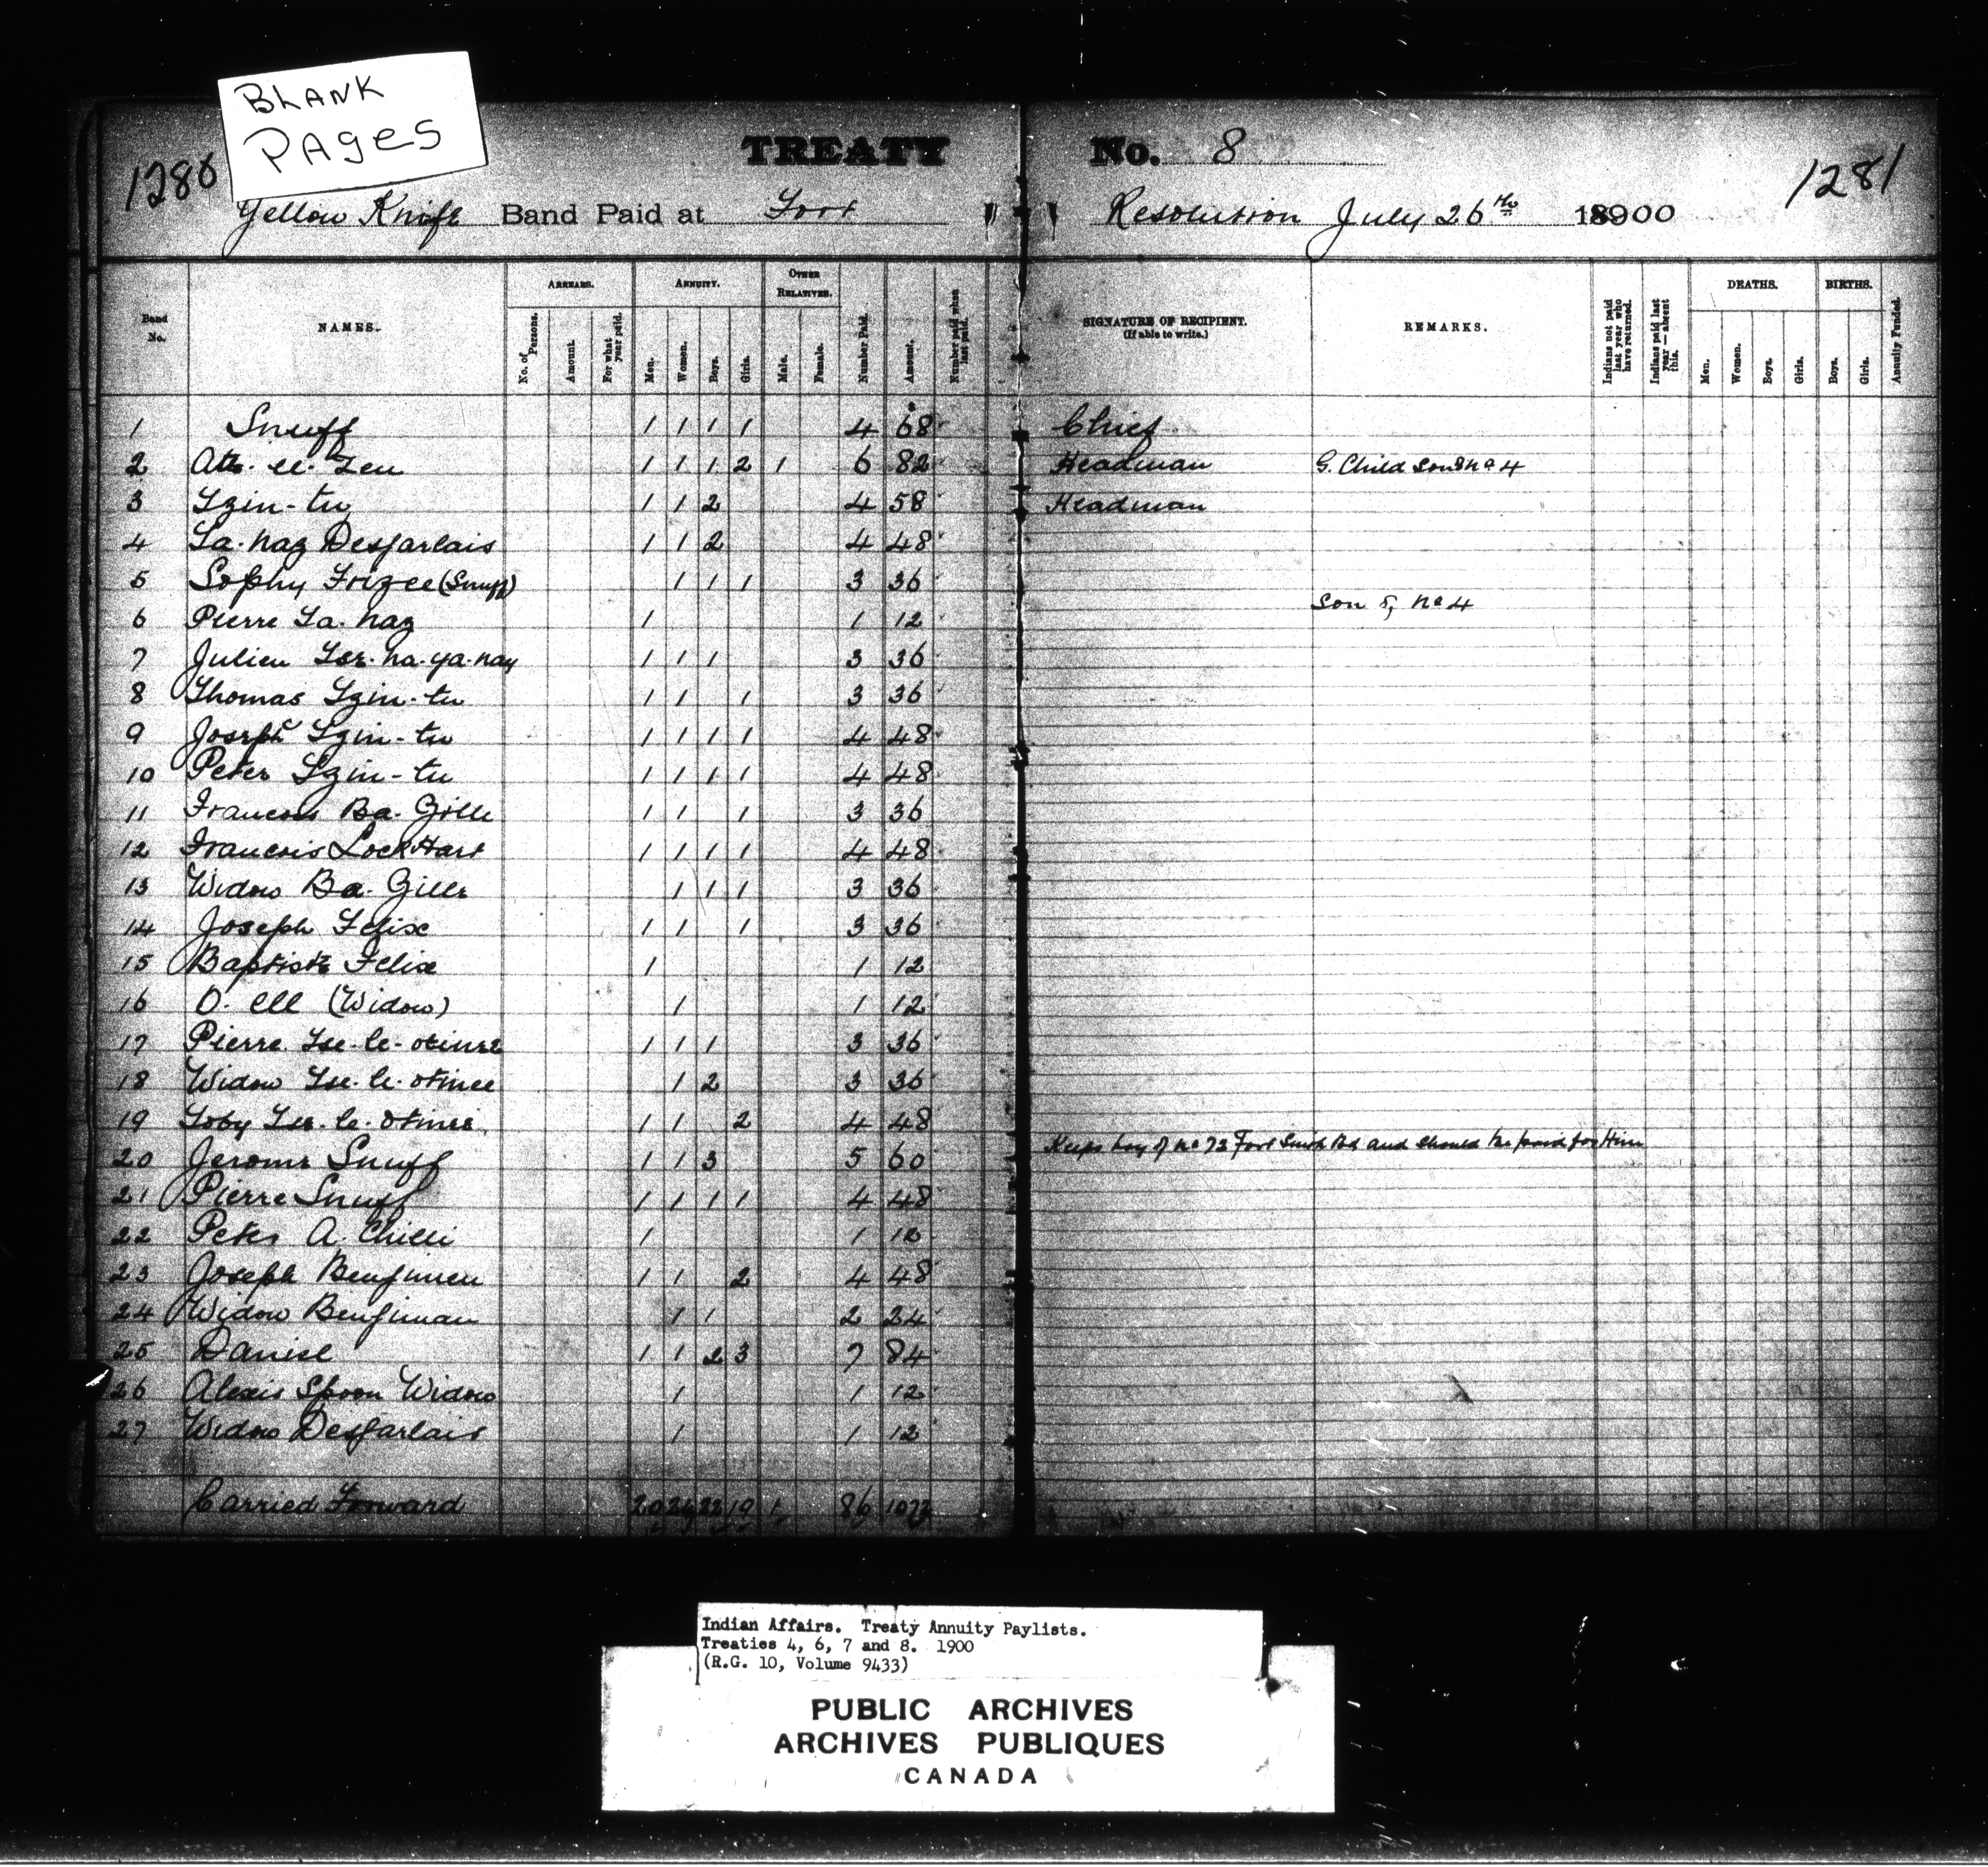 BLANK
PAGES
1280
TREATY No. 8
1281
Yellow Knife Band Paid at Fort Resolution July 26th 1900
Band No. NAMES. ARREARS. No. of Persons. Amount. For what year paid. ANNUITY. Men. Women. Boys. Girls. OTHER RELATIVES. Male. Female. Number Paid. Amount. Number paid when last paid. SIGNATURE OF RECIPIENT. (If able to write.) REMARKS. Indians not paid last year who have returned. Indians paid last year—absent this. DEATHS. Men. Women. Boys. Girls. BIRTHS. Boys. Girls. Annuity Funded.
1 Snuff 1 1 1 1 4 68 Chief
2 1 1 1 2 1 6 82 Headman G. Child Son no 4
3 Tzin-tu 1 1 2 4 58 Headman
4 La-naz Desjarlais 1 1 2 4 48
5 Sophy Frizee (Snuff) 1 1 1 3 36
6 Pierre La-naz 1 1 12 Son of no 4
7 Julien Tse-na-ya-nay 1 1 1 3 36
8 Thomas Tzin-tu 1 1 1 3 36
9 Joseph Tzin-tu 1 1 1 1 4 48
10 Peter Tzin-tu 1 1 1 1 4 48
11 Francois Ba-Gille 1 1 1 3 36
12 Francois LockHart 1 1 1 1 4 48
13 Widow Ba-Gille 1 1 1 3 36
14 Joseph Felix 1 1 1 3 36
15 Baptiste Felix 1 1 12
16 O-ell (Widow) 1 1 12
17 Pierre Tse-le-otinee 1 1 1 3 36
18 Widow Tse-le-otinee 1 2 3 36
19 Toby Tse-le-otinee 1 1 2 4 48
20 Jerome Snuff 1 1 3 5 60 Keeps boy of no 72 Fort Smith Bd and should be paid for Him
21 Pierre Snuff 1 1 1 1 4 48
22 Peter A. 1 1 12
23 Joseph Benjimen 1 1 2 4 48
24 Widow Benjiman 1 1 2 24
25 Daniel 1 1 2 3 7 84
26 Alexis Spoon Widow 1 1 12
27 Widow Desjarlais 1 1 12
Carried Forward 20 24 22 19 1 86
Indian Affairs. Treaty Annuity Paylists.
Treaties 4, 6, 7 and 8. 1900
(R.G. 10, Volume 9433)
PUBLIC ARCHIVES
ARCHIVES PUBLIQUES
CANADA